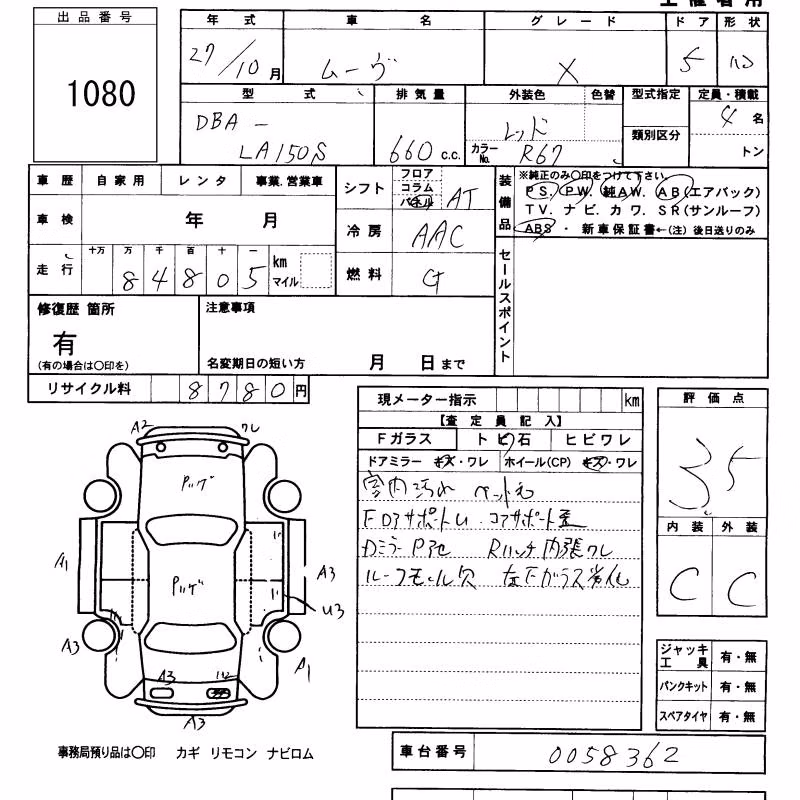 出品番号
1080
年式 車名 グレード ドア 形状
27/10月 ムーヴ X 5
型式 排気量 外装色 色替 型式指定 定員・積載
DBA-
LA150S
660 c.c.
レッド
カラーNo. R67
類別区分
4名
トン
車歴 自家用 レンタ 事業.営業車
車検 年 月
走行 十万 万 千 百 十 一
84805 km
マイル
シフト フロア
コラム
パネル
AT
冷房 AAC
燃料 G
装備品
※純正のみ〇印をつけて下さい
PS. PW. 純AW. AB(エアバック)
TV. ナビ. カワ. SR(サンルーフ)
ABS ・ 新車保証書←(注) 後日送りのみ
セールスポイント
修復歴 箇所
有
(有の場合は〇印を)
注意事項
名変期日の短い方 月 日まで
リサイクル料 8780円
現メーター指示 km
【査定員記入】
Fガラス トビ石 ヒビワレ
ドアミラー キズ・ワレ ホイール(CP) キズ・ワレ
室内汚れ
FロアサポートU コアサポート歪
Rハッチ内張ワレ
ルーフモール欠 左Fガラス劣化
評価点
3.5
内装 外装
C C
A2 ワレ
A1
A3
U3
A3
A1
A3
A3
ジャッキ
工具 有・無
パンクキット 有・無
スペアタイヤ 有・無
事務局預り品は〇印 カギ リモコン ナビロム
車台番号 0058362